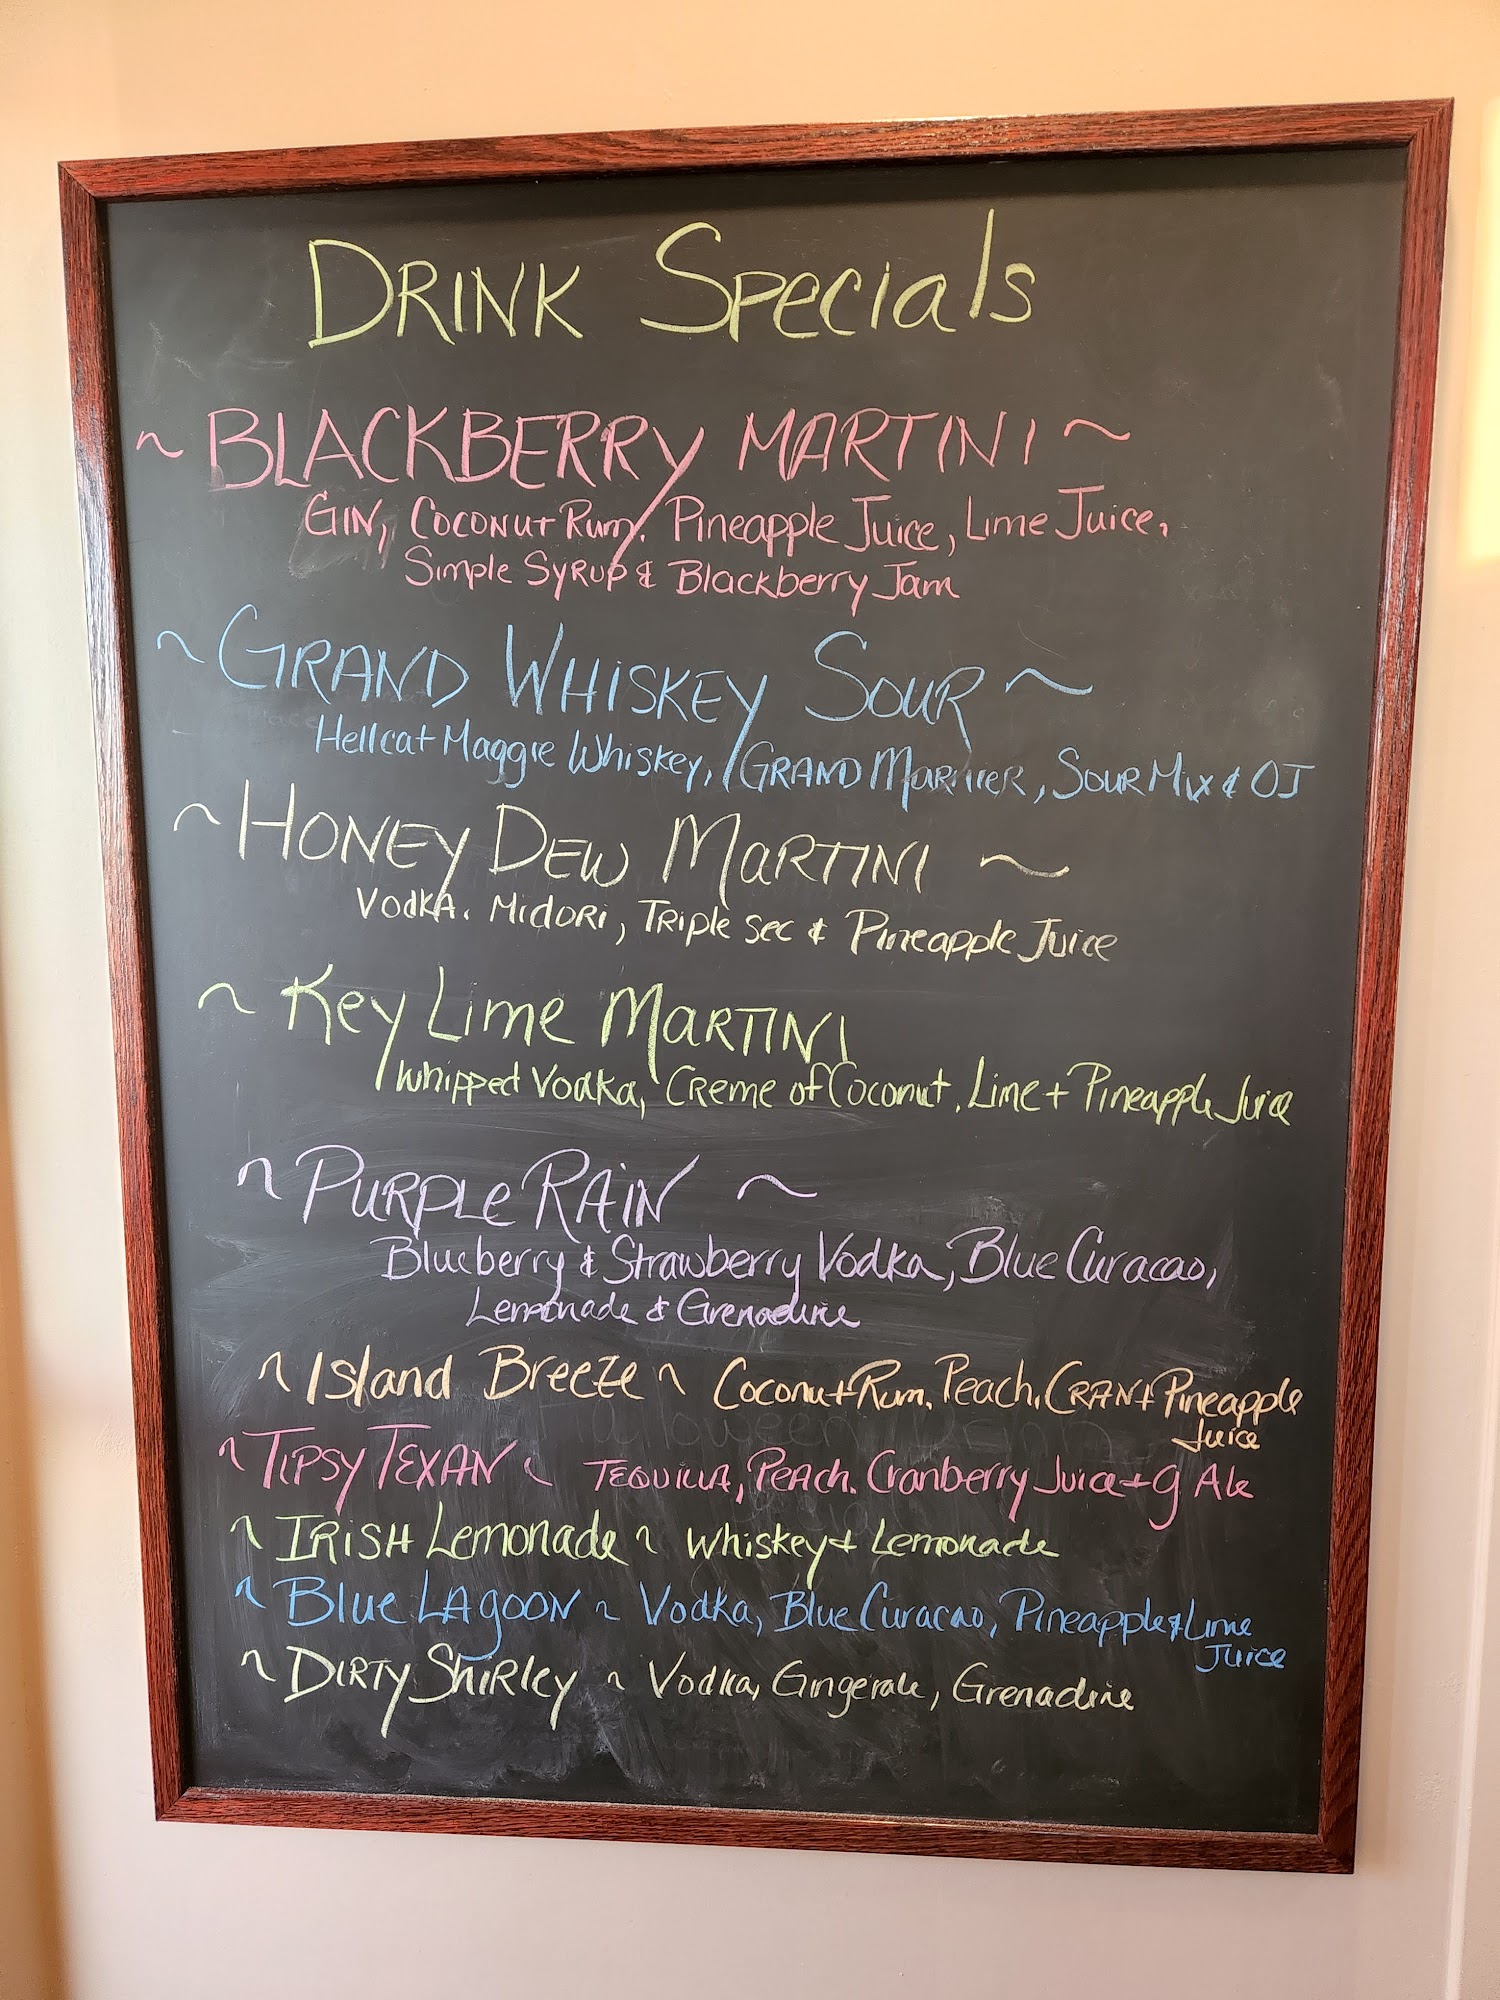 DRINK Specials
~ BLACKBERRY MARTINI ~
GIN, COCONUT Rum, Pineapple Juice, Lime Juice,
Simple SYRUP & Blackberry Jam
~ GRAND WHISKEY SOUR ~
Hellcat Maggie Whiskey, GRAND MARNIER, SOUR Mix & OJ
~ HONEY DEW MARTINI ~
VODKA, MIDORI, TRIPLE SEC & Pineapple Juice
~ Key Lime MARTINI
Whipped Vodka, CREME of Coconut, Lime + Pineapple Juice
~ PURPLE RAIN ~
Blueberry & Strawberry Vodka, Blue Curacao,
Lemonade & Grenadine
~ Island BREEZE ~ Coconut Rum, Peach, CRAN + Pineapple
Juice
~ TIPSY TEXAN ~ TEQUILLA, PEACH, Cranberry Juice + g Ale
~ IRISH Lemonade ~ Whiskey + Lemonade
~ Blue LAGOON ~ Vodka, Blue Curacao, Pineapple & Lime
Juice
~ DIRTY SHIRLEY ~ Vodka, Gingerale, Grenadine